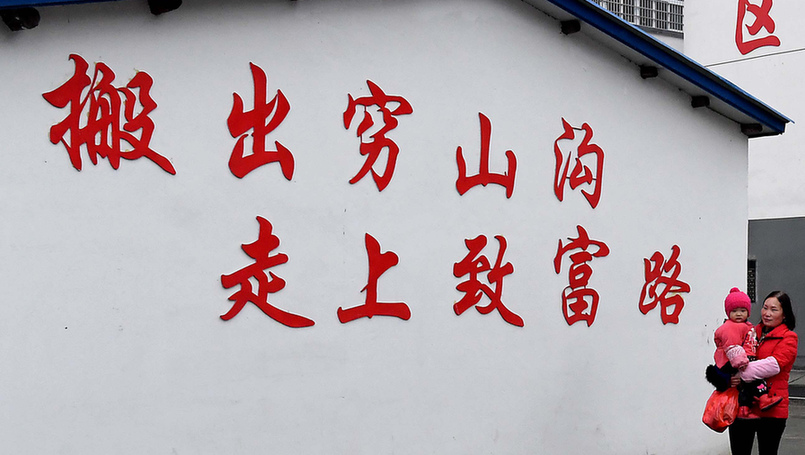 搬出穷山沟
走上致富路
区